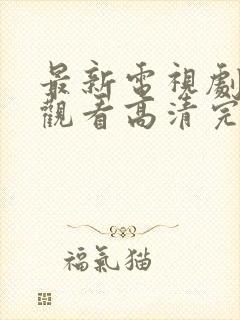 最新電視劇
觀看高清完
福氣猫